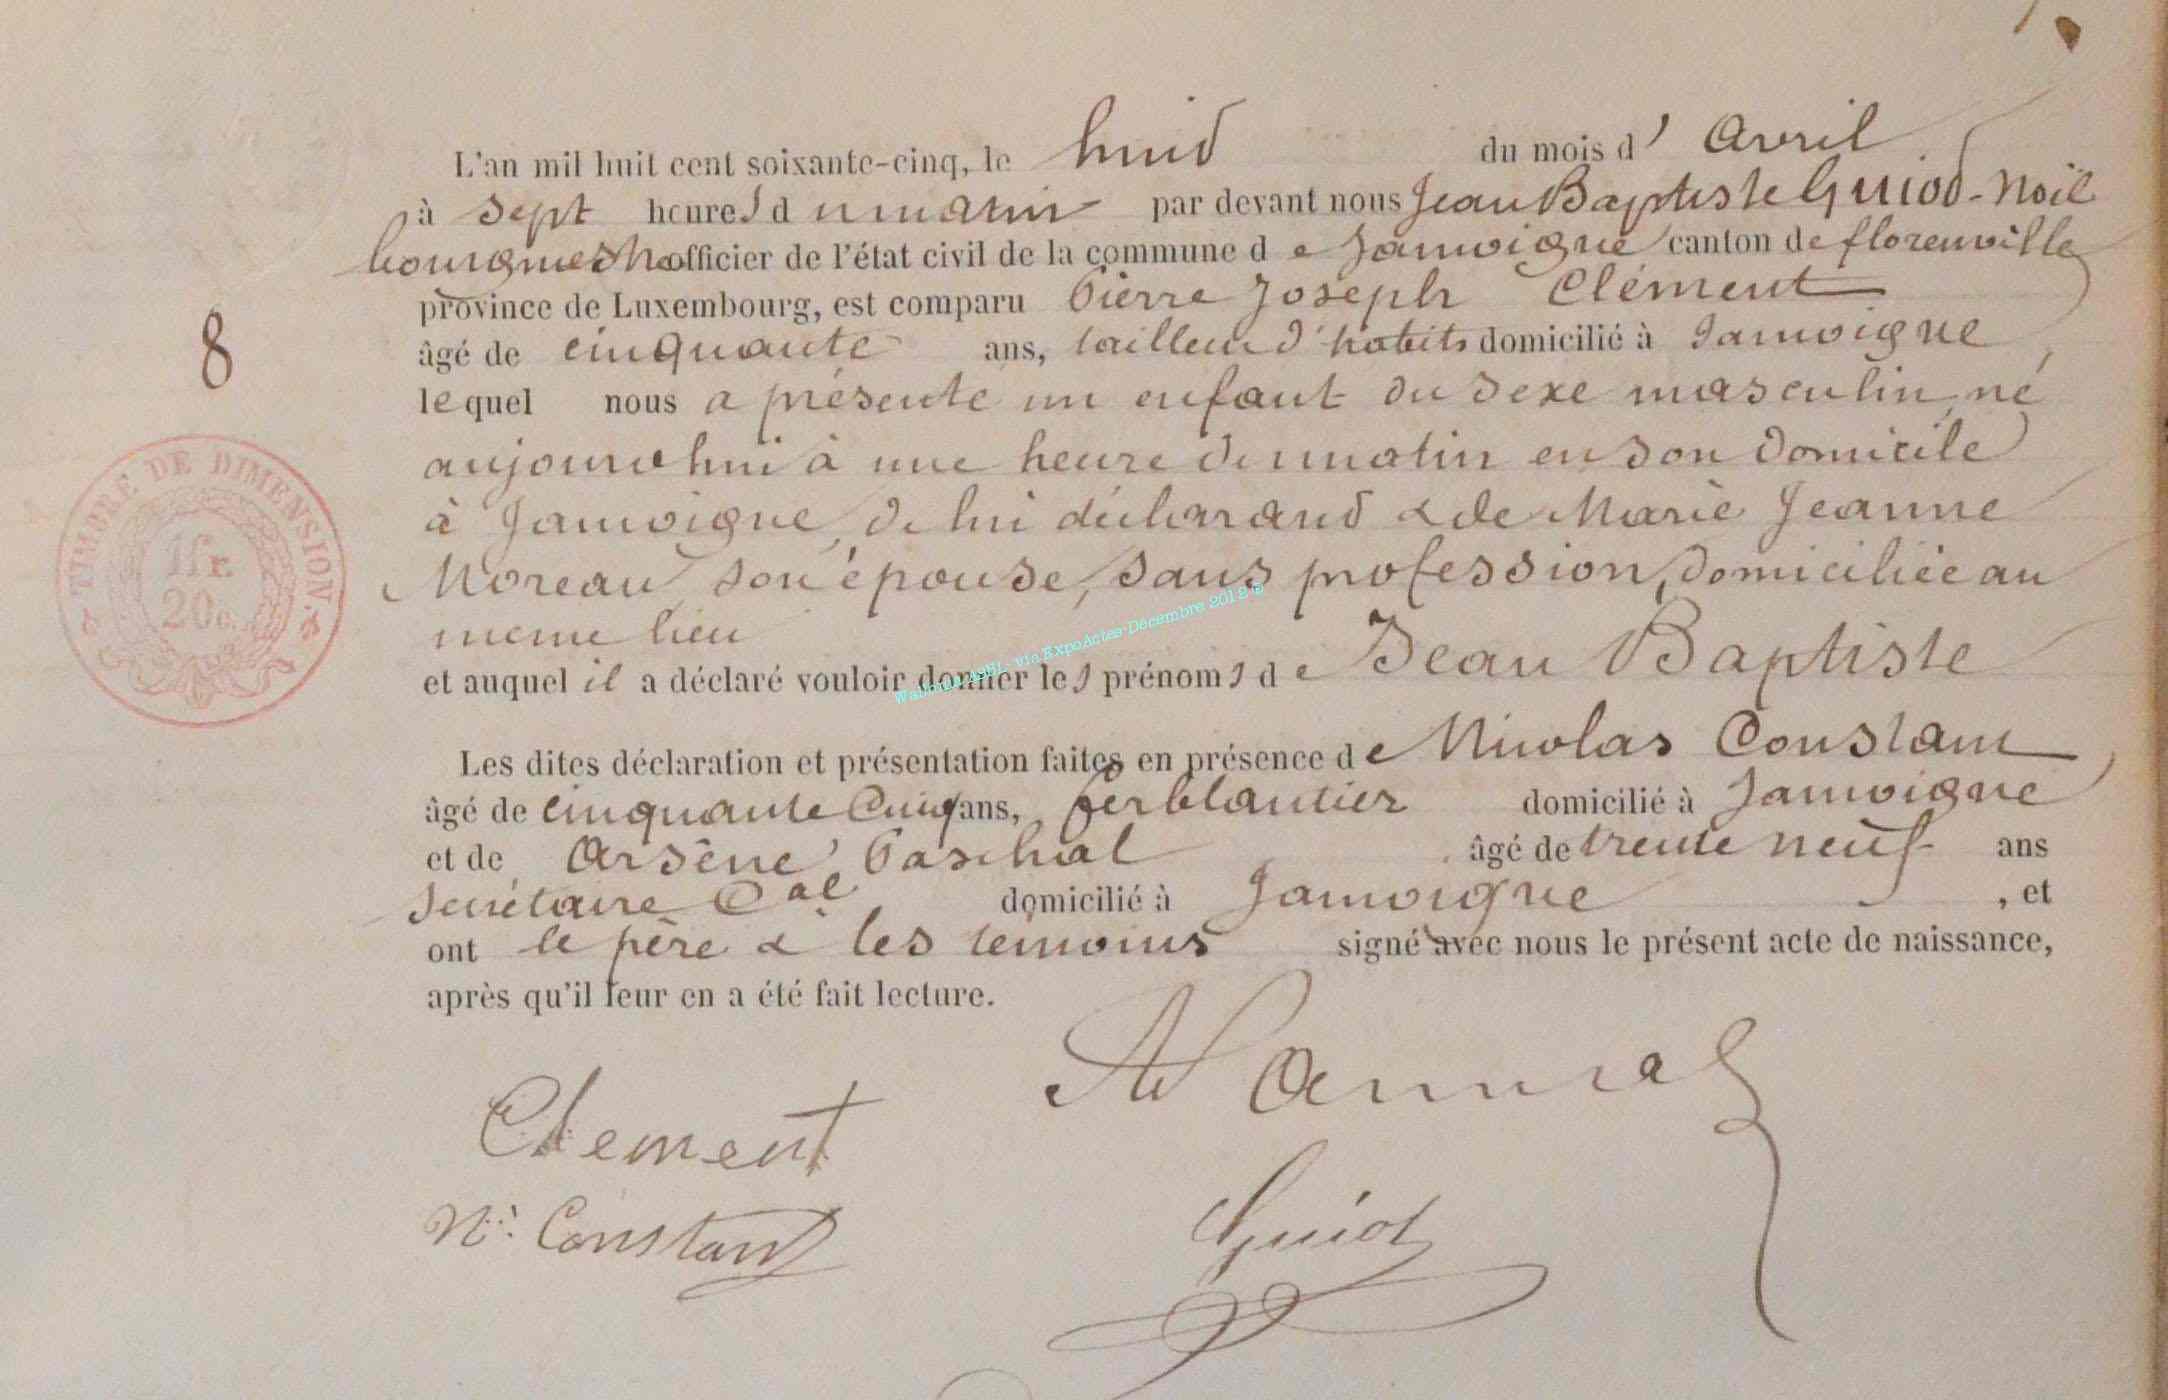 L'an mil huit cent soixante-cinq, le huid du mois d' Avril
à sept heures du matin par devant nous Jean Baptiste Guiod-Noël
bourgmestre officier de l'état civil de la commune de Jamoigne canton de florenville
province de Luxembourg, est comparu Pierre Joseph Clément
âgé de cinquante ans, tailleur d'habits domicilié à Jamoigne,
lequel nous a présenté un enfant du sexe masculin, né
aujourdhui à une heure du matin en son domicile
à Jamoigne, de lui déclarand & de Marie Jeanne
Moreau, son épouse, sans profession, domiciliée au
même lieu
et auquel il a déclaré vouloir donner les prénoms de Jean Baptiste
Les dites déclaration et présentation faites en présence de Nicolas Constant
âgé de cinquante Cinq ans, ferblantier domicilié à Jamoigne
et de Arsène Paschal âgé de trente neuf ans
secrétaire Cal domicilié à Jamoigne, et
ont le père & les témoins signé avec nous le présent acte de naissance,
après qu'il leur en a été fait lecture.
8
TIMBRE DE DIMENSION.
1fr.
20c.
via ExpoActes-Décembre 2012 ©
Clement
N. Constant
Guiot